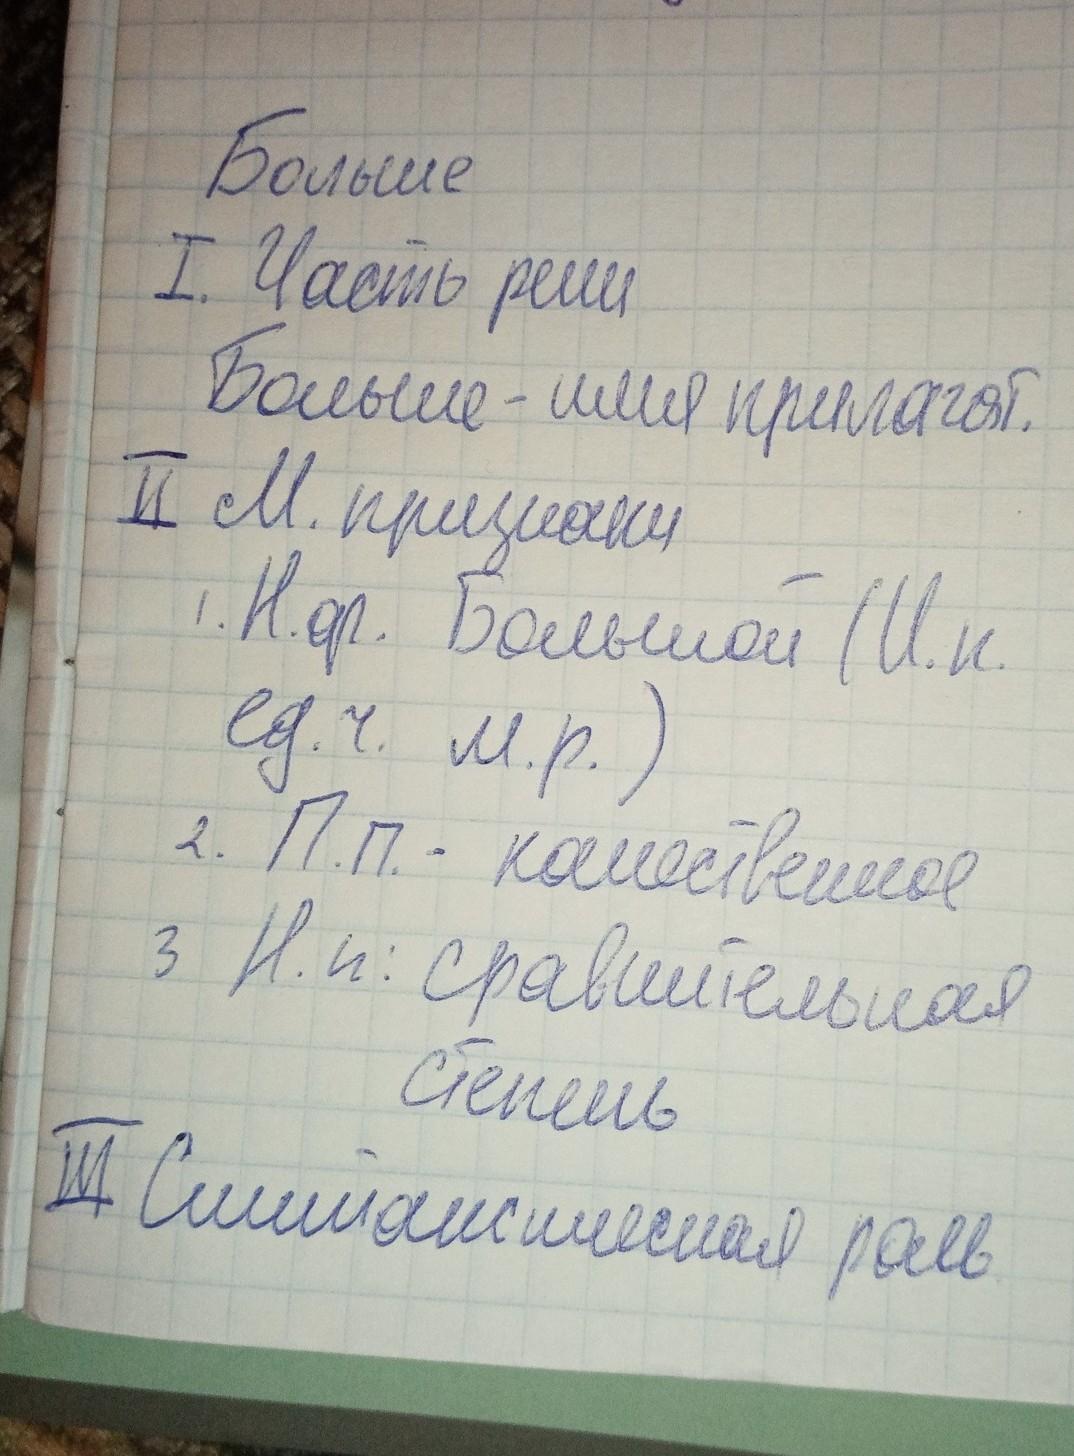 Больше
I. Часть речи
Больше - имя прилагат.
II М. признаки
1. Н.ф. Большой (И.п.
ед.ч. м.р.)
2. П.п. - качественное
3 Н.п: сравнительная
степень
III Синтаксическая роль